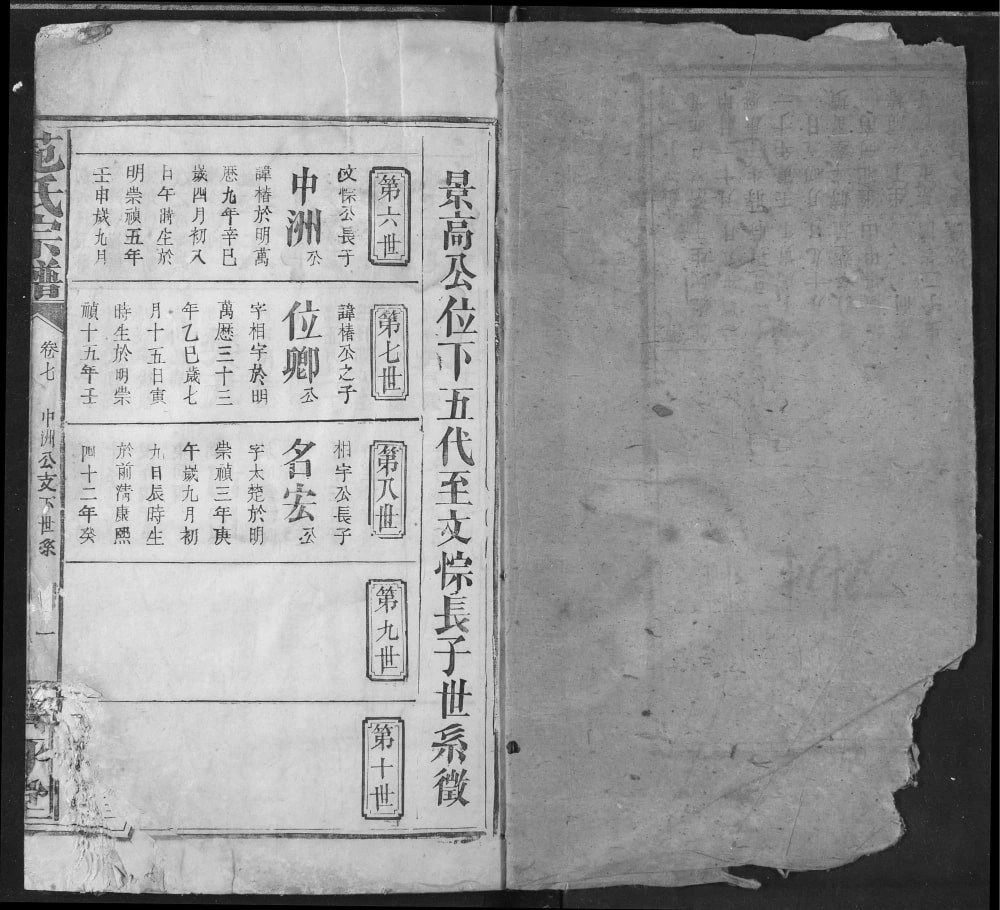 景高公位下五代至文悰長子世系徵
第六世
文悰公長子
中洲公
諱椿於明萬
歷九年辛巳
歲四月初八
日午時生於
明崇禎五年
壬申歲九月
第七世
諱椿公之子
位卿公
字相宇於明
萬歷三十三
年乙巳歲七
月十五日寅
時生於明崇
禎十五年壬
第八世
相宇公長子
名宏公
字太楚於明
崇禎三年庚
午歲九月初
九日辰時生
於前淸康熙
四十二年癸
第九世
第十世
范氏宗譜
卷七
中洲公支下世系
一